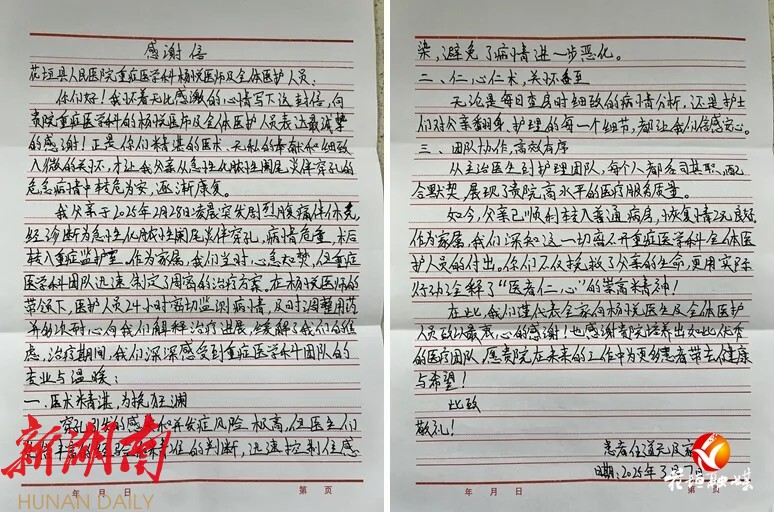 感谢信
花垣县人民医院重症医学科杨悦医师及全体医护人员：
你们好！我怀着无比感激的心情写下这封信，向
贵院重症医学科的杨悦医师及全体医护人员表达最诚挚
的感谢！正是你们精湛的医术、无私的奉献和细致
入微的关怀，才让我父亲从急性化脓性阑尾炎伴穿孔的
危急病情中转危为安，逐渐康复。
我父亲于2025年2月28日凌晨突发剧烈腹痛伴休克，
经诊断为急性化脓性阑尾炎伴穿孔，病情危重，术后
转入重症监护室。作为家属，我们当时心急如焚，但重症
医学科团队迅速制定了周密的治疗方案，在杨悦医师的
带领下，医护人员24小时密切监测病情，及时调整用药
并多次耐心向我们解释治疗进展，缓解了我们的焦
虑，治疗期间，我们深深感受到重症医学科团队的
专业与温暖：
一、医术精湛，为挽狂澜
穿孔引发的感 和并发症风险极高，但医生们
丰富的经验 的判断，迅速控制住感
新湖南
HUNAN DAILY
年 月 日 第 页
染，避免了病情进一步恶化。
二、仁心仁术，关怀备至
无论是每日查房时细致的病情分析，还是护士
们对父亲翻身、护理的每一个细节，都让我们倍感安心。
三、团队协作，高效有序
从主治医生到护理团队，每个人都各司其职，配
合默契，展现了贵院高水平的医疗服务质量。
如今，父亲已顺利转入普通病房，恢复情况良好，
作为家属，我们深知这一切离不开重症医学科全体医
护人员的付出。你们不仅挽救了父亲的生命，更用实际
行动诠释了“医者仁心”的崇高精神！
在此，我们谨代表全家向杨悦医生及全体医护
人员致以最衷心的感谢！也感谢贵院培养出如此优秀
的医疗团队，愿贵院在未来的工作中为更多患者带去健康
与希望！
此致
敬礼！
患者任道元
日期：2025年3月
年 月 日 第 页
花垣融媒